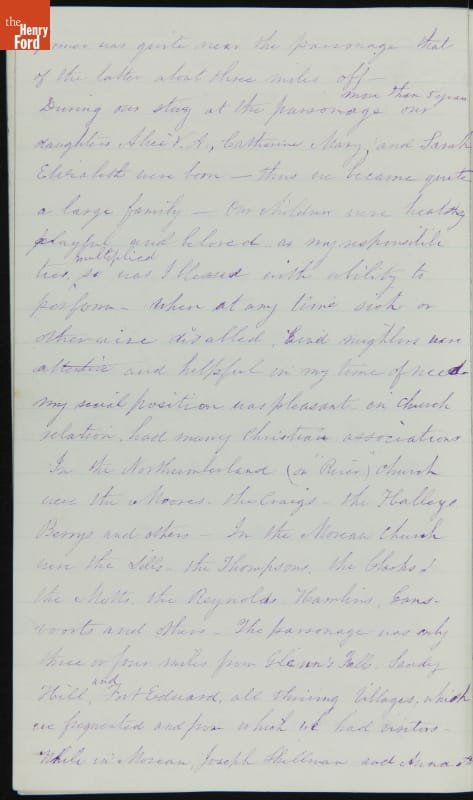 the
Henry
Ford
was quite near the parsonage that
of the latter about three miles off
more than 5 years
During our stay at the parsonage our
daughters Alice V. A., Catherine Mary, and Sarah
Elizabeth were born — thus we became quite
a large family — Our children were healthy
playful and beloved as my responsibili
multiplied
ties, so was I blessed with ability to
perform — when at any time sick or
otherwise disabled, kind neighbors were
attentive and helpful in my time of need.
my social position was pleasant. in church
relation, had many Christian associations
In the Northumberland (or "River") Church
were the Moores. the Craigs — the
Berrys and others — In the Moreau Church
were the Sills — the Thompsons, the Clarks &
the Motts, the Reynolds, Hamlins,
and others — The parsonage was only
three or four miles from Glenn's Falls, Sandy
and
Hill, Fort Edward, all thriving Villages, which
we frequented and from which we had visitors —
While in Moreau, Joseph Skillman and Anna